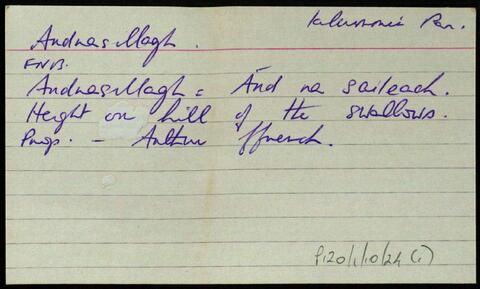 Kilummod Par.
Ardnasillagh.
FNB.
Ardnasillagh = Árd na saileach.
Height or hill of the swallows.
Prop. - Arthur ffrench.
P120/1/10/24 (1)